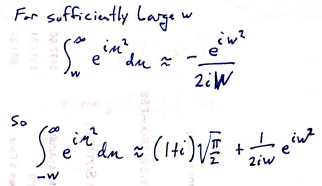 For sufficiently Large w
∫_w^∞ e^{iu²} du ≈ - e^{iw²} / 2iW
So
∫_{-w}^∞ e^{iu²} du ≈ (1+i)√(π/2) + 1/(2iw) e^{iw²}